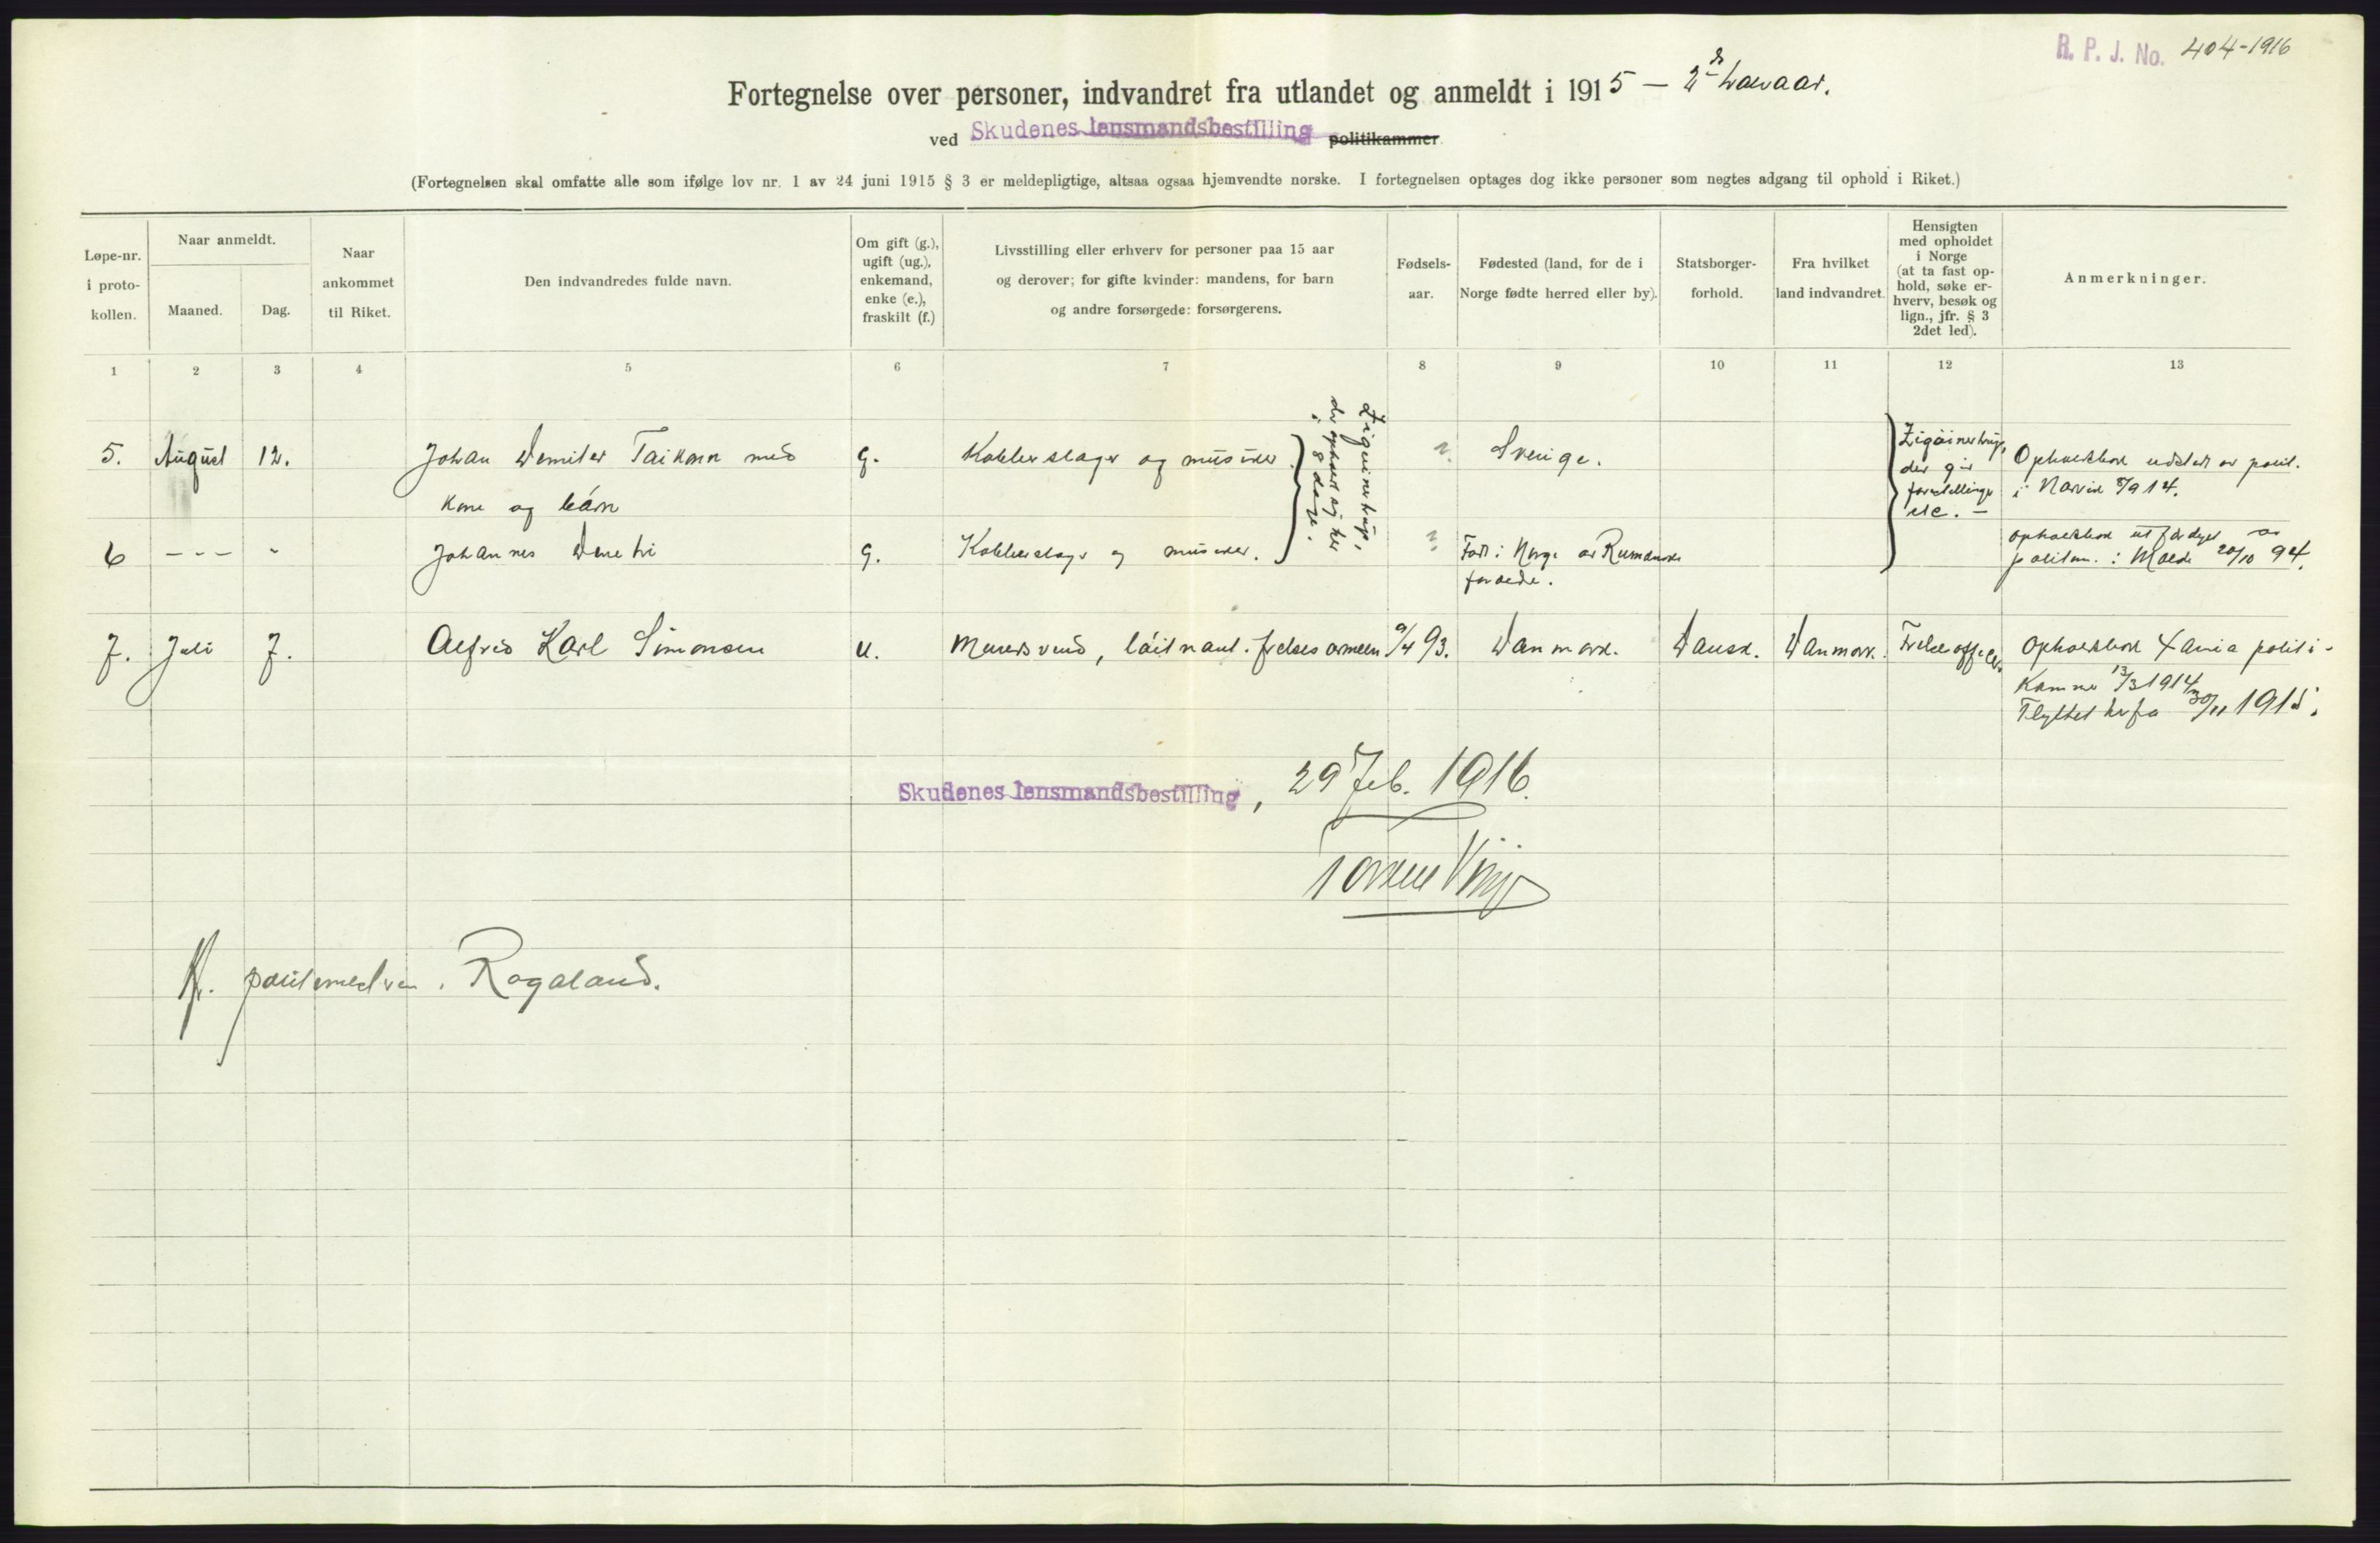 R. P. J. No. 404-1916
Fortegnelse over personer, indvandret fra utlandet og anmeldt i 1915 – 2det halvaar.
ved Skudenes lensmandsbestilling politikammer
(Fortegnelsen skal omfatte alle som ifølge lov nr. 1 av 24 juni 1915 § 3 er meldepligtige, altsaa ogsaa hjemvendte norske. I fortegnelsen optages dog ikke personer som negtes adgang til ophold i Riket.)
Løpe-nr.
i proto-
kollen.
Naar anmeldt.
Maaned.
Dag.
Naar
ankommet
til Riket.
Den indvandredes fulde navn.
Om gift (g.),
ugift (ug.),
enkemand,
enke (e.),
fraskilt (f.)
Livsstilling eller erhverv for personer paa 15 aar
og derover; for gifte kvinder: mandens, for barn
og andre forsørgede: forsørgerens.
Fødsels-
aar.
Fødested (land, for de i
Norge fødte herred eller by).
Statsborger-
forhold.
Fra hvilket
land indvandret.
Hensigten
med opholdet
i Norge
(at ta fast op-
hold, søke er-
hverv, besøk og
lign., jfr. § 3
2det led).
Anmerkninger.
1 2 3 4 5 6 7 8 9 10 11 12 13
5. August 12. Johan Demiter Taikon med g. Kobberslager og musiker ? Sverige.
kone og barn
Zigøinertrup,
der opholdt sig her
i 8 dage.
Zigøinertrup,
der gir
forestillinger
etc. –
Opholdsbok utstedt av polit.
i Narvik 5/9 14.
6 - - - " Johannes Demetri g. Kobberslager og musiker. ? Født i Norge av Rumænske
forældre.
opholdsbok utfærdiget av
politim. i Molde 20/10 94.
7. Juli 7. Alfred Karl Simonsen u. Murersvend, løitnant. frelsesarmeen 9/4 93. Danmark. Dansk. Danmark. Frelseoffiser
Opholdsbok X ania politi-
kammer 13/3 1914
Flyttet herfra 30/11 1915.
Skudenes lensmandsbestilling, 29 Feb. 1916.
Hr. politimesteren i Rogaland.